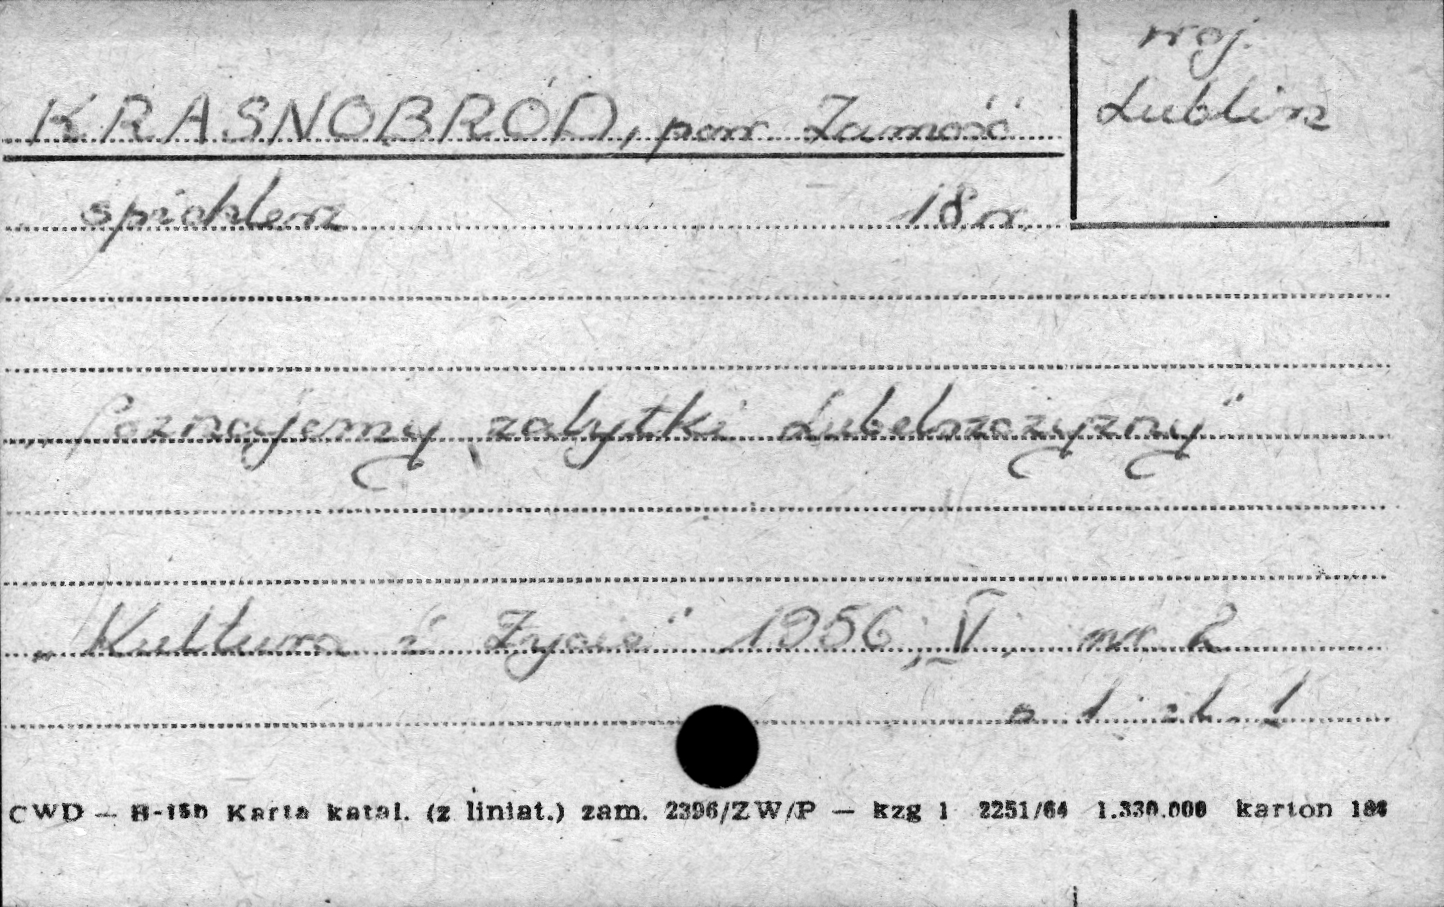 woj.
Lublin
KRASNOBRÓD, pow Zamość
spichlerz 18 w.
"Poznajemy zabytki Lubelszczyzny"
"Kultura i Życie" 1956, V, nr 2
s. 1 il. 1
CWD — H-15b Karta katal. (z liniat.) zam. 2396/ZW/P — kzg 1 2251/64 1.330.000 karton